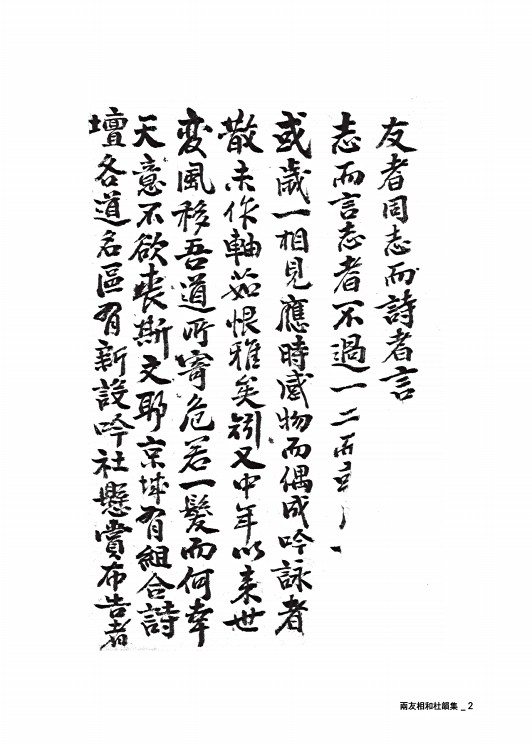 友者同志而詩者言
志而言志者不過一二而
或歲一相見應時感物而偶成吟詠者
散未作軸茹恨雅矣矧又中年以来世
変風移吾道所寄危若一髮而何幸
天意不欲喪斯文耶京城有組合詩
壇各道名區有新設吟社懸賞布告者
兩友相和杜韻集 _ 2